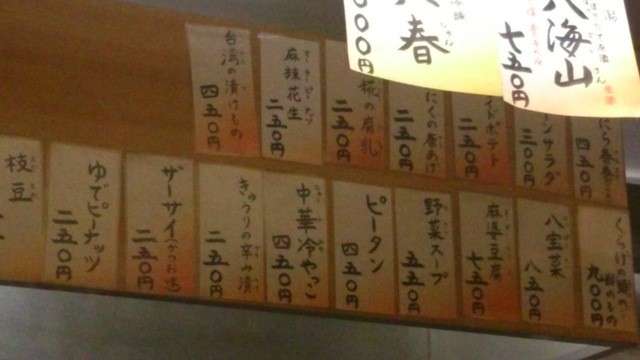 春
八海山
七五〇円
台湾の漬けもの
四五〇円
麻辣花生
二五〇円
糀の腐乳
二五〇円
にくの唐あげ
二五〇円
イドポテト
二五〇円
ンサラダ
三〇〇円
にら春巻
四五〇円
枝豆
ゆでピーナッツ
二五〇円
ザーサイ(かつお味)
二五〇円
きゅうりの辛み漬
二五〇円
中華冷やっこ
四五〇円
ピータン
四五〇円
野菜スープ
五五〇円
麻婆豆腐
七五〇円
八宝菜
八五〇円
くらげの頭の
酢のもの
九〇〇円